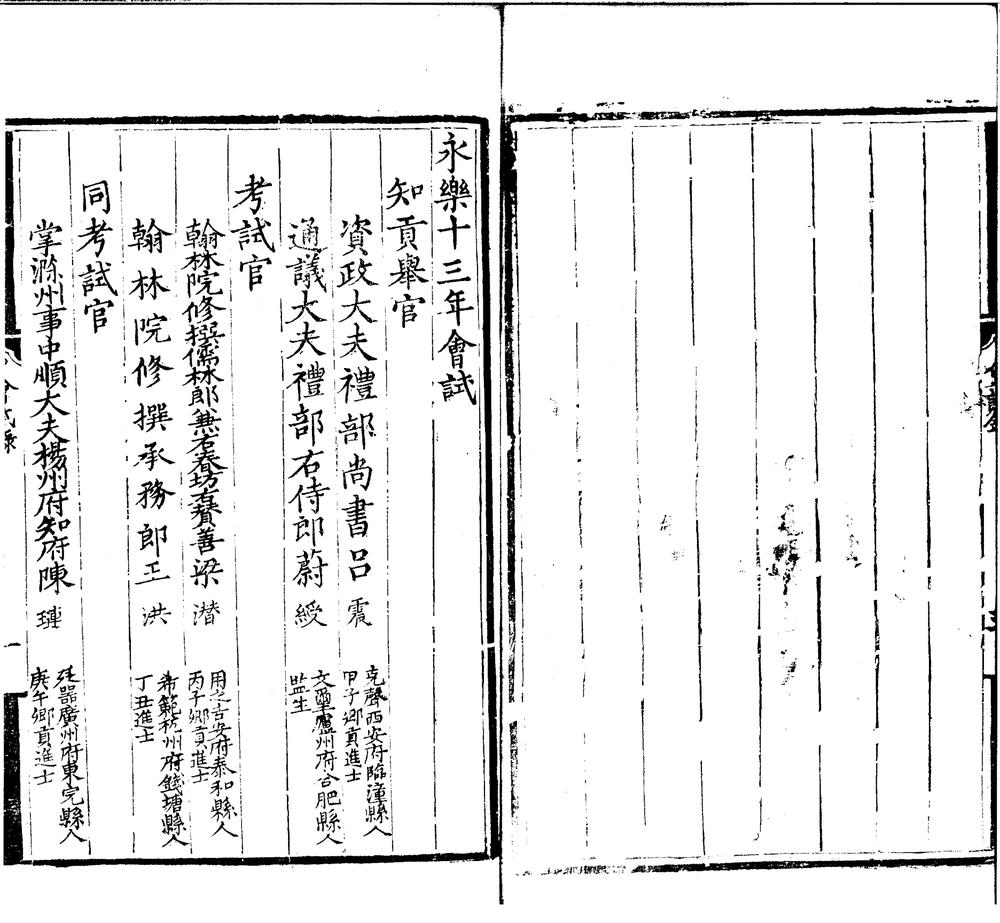 永樂十三年會試
知貢舉官
資政大夫禮部尚書呂震
克聲西安府臨潼縣人
甲子鄉貢進士
通議大夫禮部右侍郎蔚綬
文璽廬州府合肥縣人
監生
考試官
翰林院修撰儒林郎兼右春坊右贊善梁潛
用之吉安府泰和縣人
丙子鄉貢進士
翰林院修撰承務郎王洪
希範杭州府錢塘縣人
丁丑進士
同考試官
掌滁州事中順大夫楊州府知府陳璉
廷器廣州府東完縣人
庚午鄉貢進士
會試錄
一